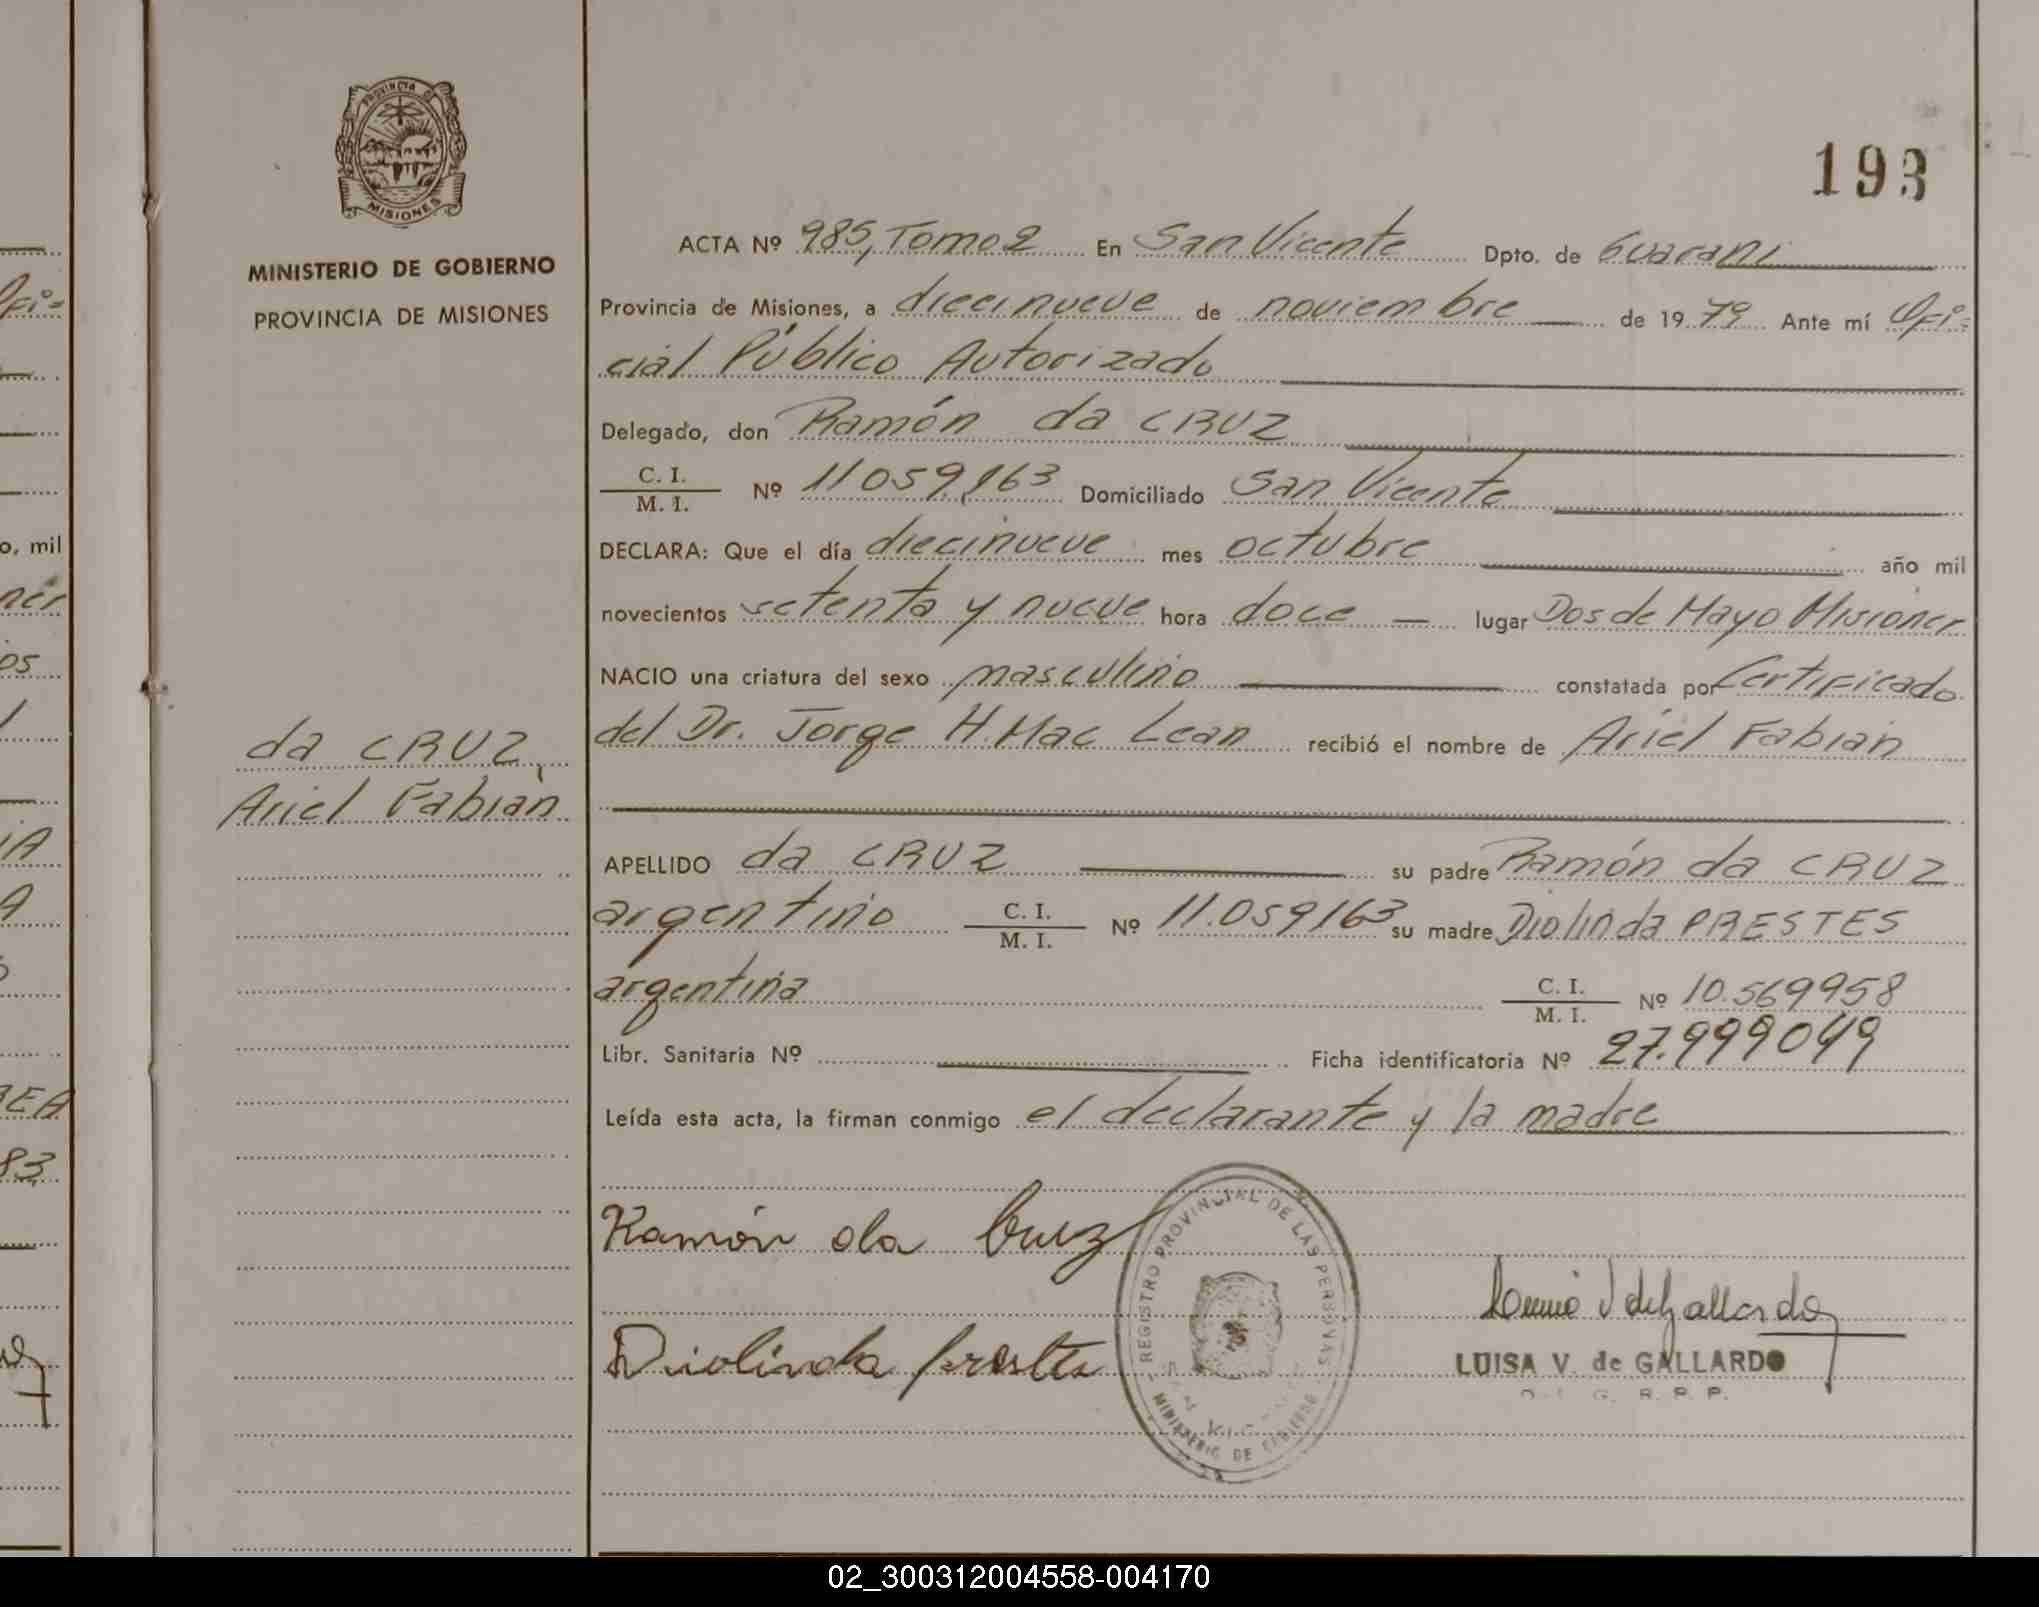 PROVINCIA DE
MISIONES
MINISTERIO DE GOBIERNO
PROVINCIA DE MISIONES
da CRUZ,
Ariel Fabián
193
ACTA Nº 985, Tomo 2 En San Vicente Dpto. de Guaraní
Provincia de Misiones, a diecinueve de noviembre de 1979 Ante mí Ofi=
cial Público Autorizado
Delegado, don Ramón da CRUZ
C. I.
M. I. Nº 11.059.163 Domiciliado San Vicente
DECLARA: Que el día diecinueve mes octubre año mil
novecientos setenta y nueve hora doce lugar Dos de Mayo Misiones
NACIO una criatura del sexo masculino constatada por Certificado
del Dr. Jorge H. Mac Lean recibió el nombre de Ariel Fabián
APELLIDO da CRUZ su padre Ramón da CRUZ
argentino C. I.
M. I. Nº 11.059163 su madre Diolinda PRESTES
argentina C. I.
M. I. Nº 10.569958
Libr. Sanitaria Nº Ficha identificatoria Nº 27.999049
Leída esta acta, la firman conmigo el declarante y la madre
Ramón da Cruz
Diolinda prestes
REGISTRO PROVINCIAL DE LAS PERSONAS
MINISTERIO DE GOBIERNO
LUISA V. de GALLARDO
o, mil
83
02_300312004558-004170